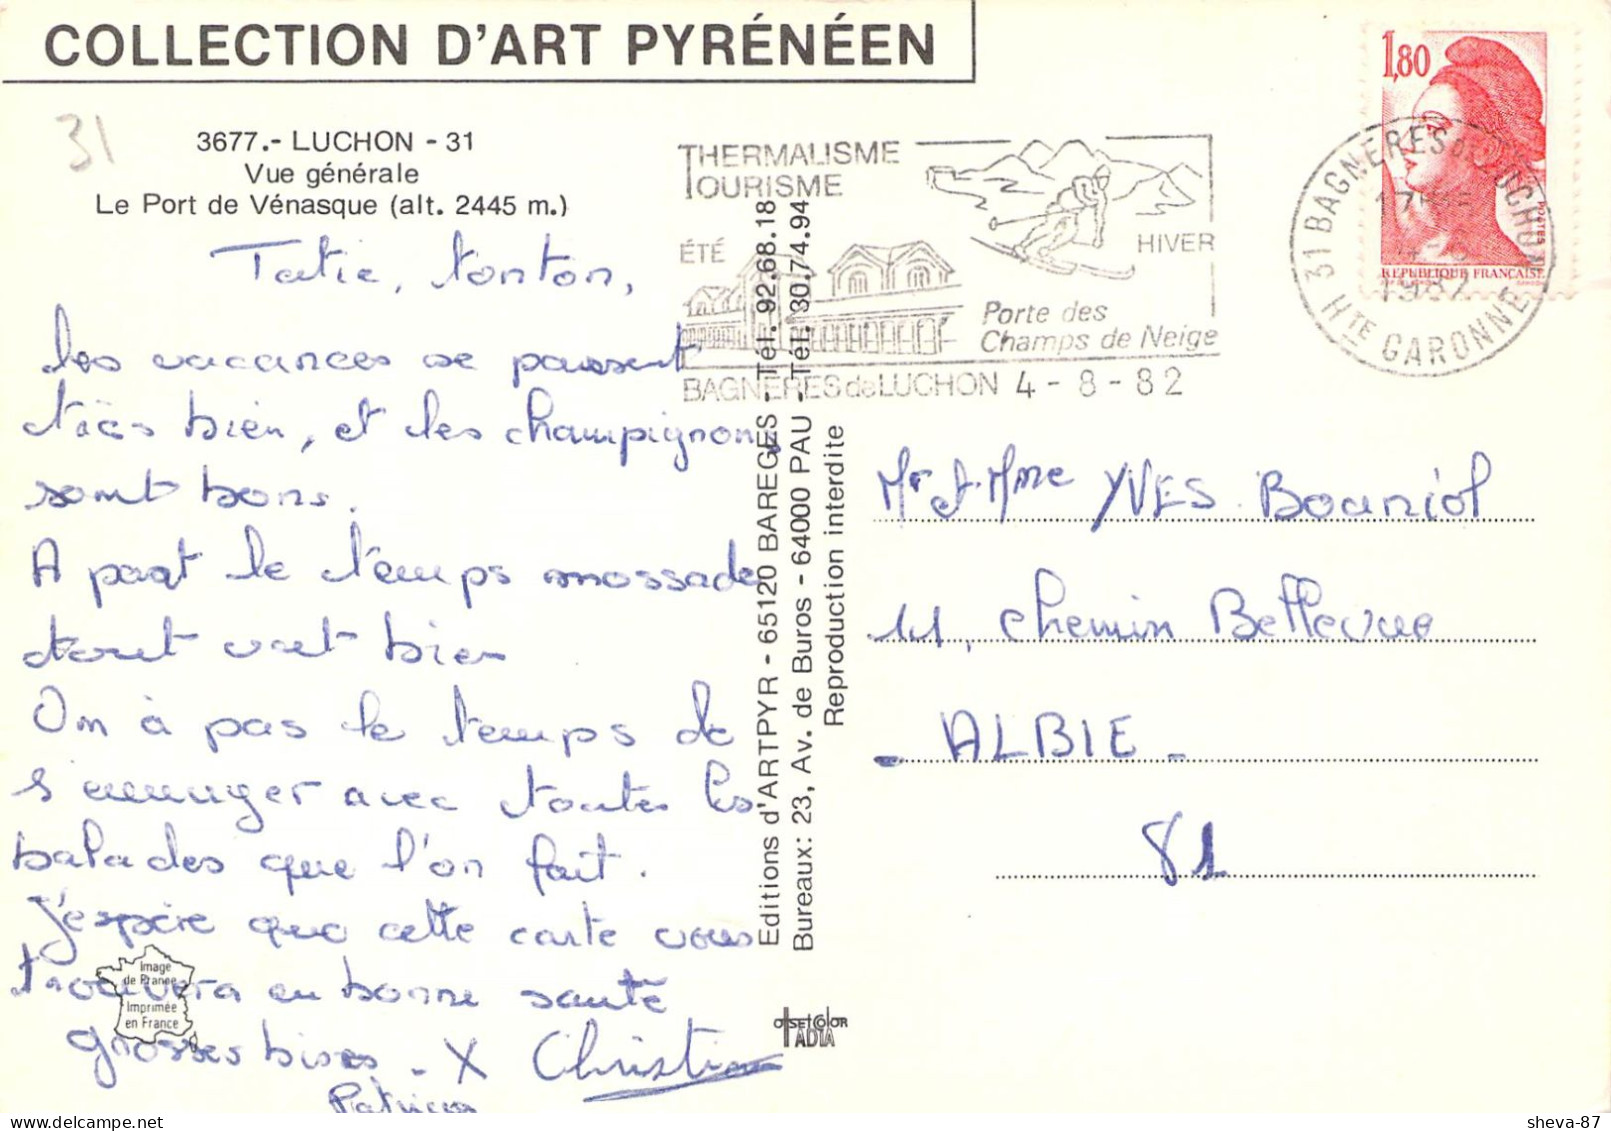 COLLECTION D'ART PYRÉNÉEN
31
3677.- LUCHON - 31
Vue générale
Le Port de Vénasque (alt. 2445 m.)
Tatie, tonton,
les vacances se passent
très bien, et les champignons
sont bons.
A part le temps mossade
tout vat bien
On à pas le temps de
s'ennuyer avec toutes les
balades que l'on fait.
J'espère que cette carte vous
trouvera en bonne santé
grosses bises - X Christine
Patricia
Image
de France
Imprimée
en France
Editions d'ARTPYR - 65120 BAREGES - Tél. 92.68.18
Bureaux: 23, Av. de Buros - 64000 PAU - Tél. 30.74.94
Reproduction interdite
OFFSET COLOR
TADIA
THERMALISME
TOURISME
ÉTÉ
HIVER
Porte des
Champs de Neige
BAGNERES de LUCHON 4 - 8 - 82
1,80
POSTES
REPUBLIQUE FRANÇAISE
31 BAGNERES DE LUCHON
HTE GARONNE
Mr et Mme YVES Bouniol
11, chemin Bellevue
- ALBIE -
81
sheva-87